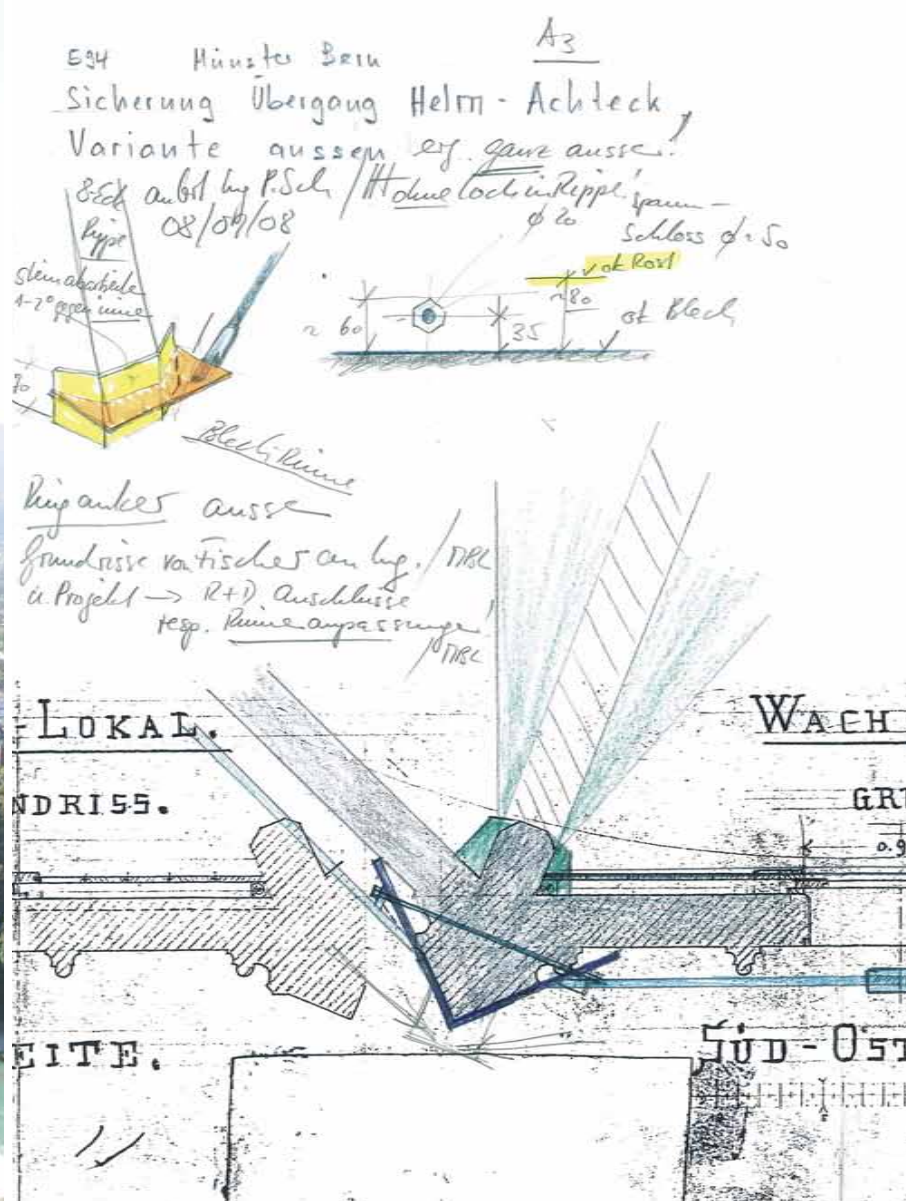 A3
E94 Münster Bern
Sicherung Übergang Helm - Achteck
Variante aussen ganz aussen!
8-Eck Ing P.Sch / HH ohne Loch in Rippe!
08/09/08
Rippe
1-2° gegen innen
70
ϕ 20
spann-
Schloss ϕ ~ 50
ok Rost
~ 60
35
~80
ok Blech
Blech Rinne
Ringanker aussen
Grundrisse von Fischer an Ing. / MBL
u. Projekt → R+D Anschlüsse
resp. Rinneanpassungen!
/ MBL
-LOKAL.
WACH
NDRISS.
GR
0.9
EITE.
SÜD-OST